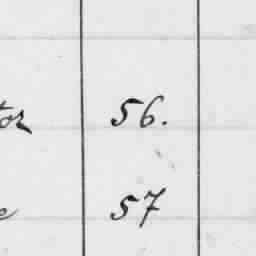 tor 56.
e 57